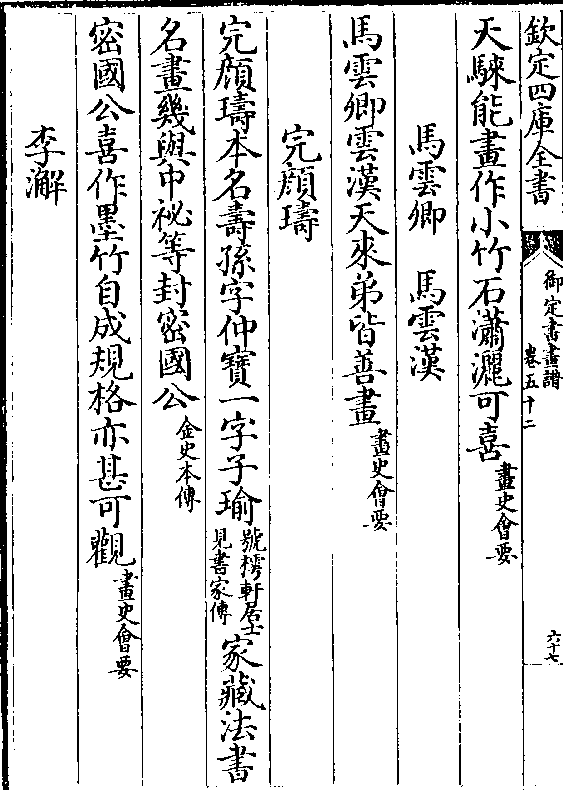 欽定四庫全書
御定書畫譜
卷五十二
六十七
天騋能畫作小竹石瀟灑可喜畫史會要
馬雲卿 馬雲漢
馬雲卿雲漢天來弟皆善畫畫史會要
完顔璹
完顔璹本名壽孫字仲寶一字子瑜號樗軒居士見書家傳家藏法書
名畫幾與中祕等封密國公金史本傳
密國公喜作墨竹自成規格亦甚可觀畫史會要
李澥